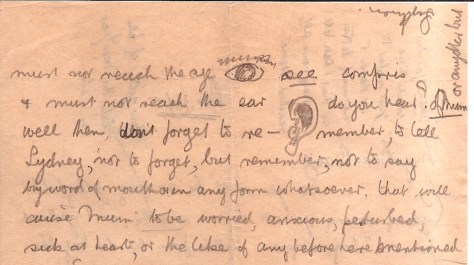 must not reach the eye see
& must not reach the ear do you hear. of Mum or any other but
well then, don't forget to re- member, to tell
Sydney, not to forget, but remember, not to say
by word of mouth or in any form whatsoever, that will
cause Mum to be worried, anxious, perturbed,
sick at heart, or the like of any before here mentioned